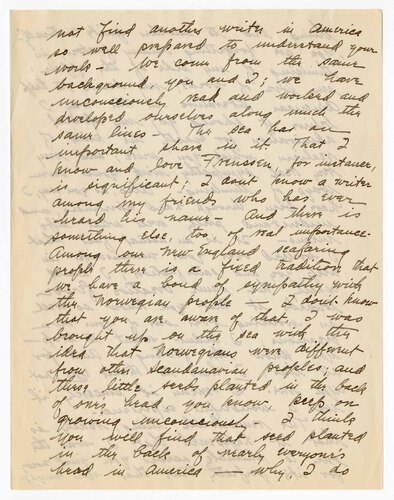 not find another writer in America
so well prepared to understand your
work — We come from the same
background, you and I; we have
unconsciously read and worked and
developed ourselves along much the
same lines — The sea has an
important share in it. That I
know and love Frenssen, for instance,
is significant; I don't know a writer
among my friends who has ever
heard his name — And there is
something else, too, of real importance.
Among our New England seafaring
people there is a fixed tradition that
we have a bond of sympathy with
the Norwegian people — I don't know
that you are aware of that. I was
brought up on the sea with the
idea that Norwegians were different
from other Scandanavian peoples; and
these little seeds planted in the back
of one's head, you know, keep on
growing unconsciously — I think
you will find that seed planted
in the back of nearly everyone's
head in America — why, I do